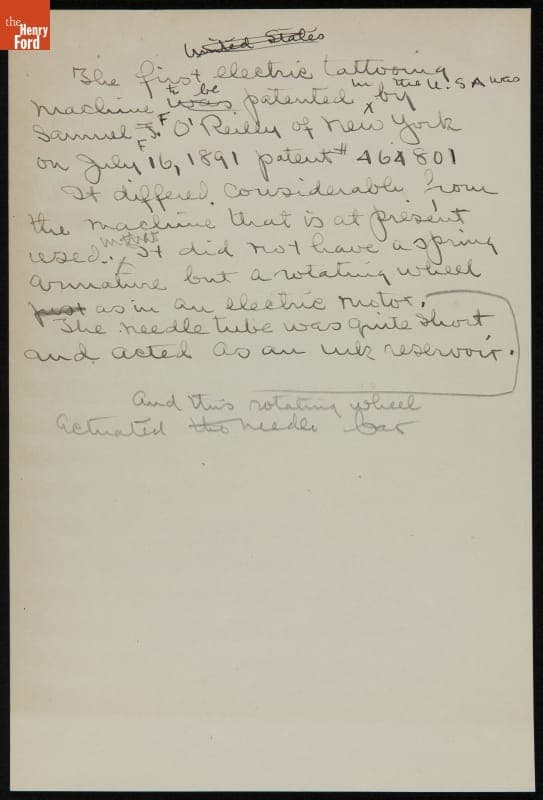 the
Henry
Ford
United States
The first electric tattooing
to be in the U.S.A was
machine was patented by
Samuel J. F O'Reilly of New York
F
on July 16, 1891 patent # 464801
It differed considerable from
the machine that is at present
in that
used. It did not have a spring
armature but a rotating wheel
just as in an electric motor.
The needle tube was quite short
and acted as an ink reservoir.
And this rotating wheel
actuated the needle bar